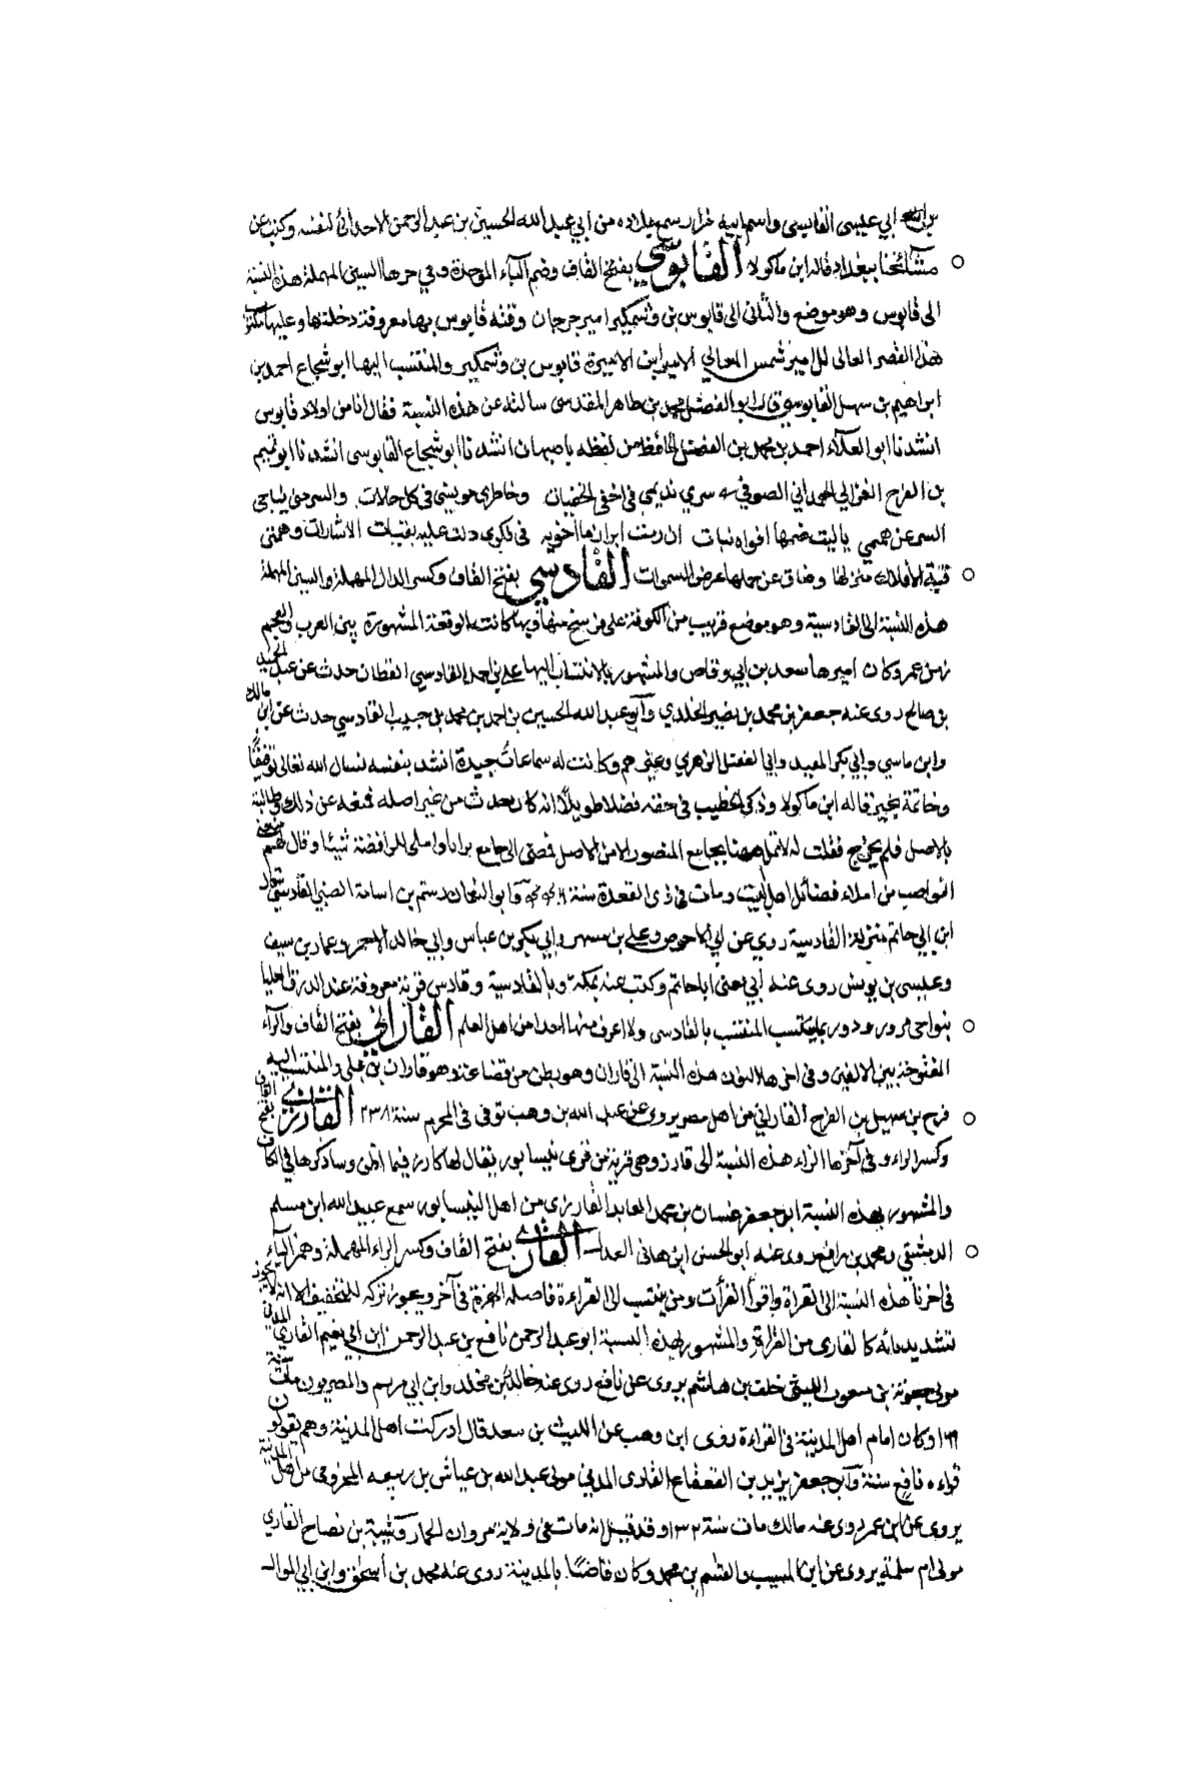 ابي عيسى القابسي واسم ابيه من ابي عبد الله الحسين بن عبد الرحمن الاحدائ لنفسه وكتب عن
مشائخنا ببغداد قاله ابن ماكولا القابوسي بفتح القاف وضم الباء الموحدة وفي اخرها السين المهملة هذه النسبة
الى قابوس وهو موضع والثانى الى قابوس بن وشمكير امير جرجان وقبته قابوس بها معروفة دخلتها وعليها مكتوب
هذا القصر العالى للامير شمس المعالي الامير ابن الاميرة قابوس بن وشمكير والمنتسب اليها ابو شجاع احمد بن
ابراهيم بن سهل القابوسي قال ابو الفضل محمد بن طاهر المقدسى سالته عن هذه النسبة فقال انا من اولاد قابوس
انشدنا ابو العلاء احمد بن محمد بن الفضل الحافظ من لفظه باصبهان انشدنا ابو شجاع القابوسى انشدنا ابو تميم
بن الفرج الغزالي الهمداني الصوفي سري نديمى فى اخفى الخفيات وخاطري مونسى فى كل حالات والسر منى يناجى
السر عن هممي ياليت ضمها افواه نبات ان رمت ابرازها فى ذكرى دلت عليه بقيات الاشارات وهمتى
قبة الافلاك منزلها وضاق عن حملها عرض السموات القادسي بفتح القاف وكسر الدال المهملة والسين المهملة
هذه النسبة الى القادسية وهو موضع قريب من الكوفة على فرسخ منها وبها كانت الوقعة المشهورة بين العرب والعجم
زمن عمر وكان اميرها سعد بن ابي وقاص والمشهور بالانتساب اليها علي بن احمد القادسي القطان حدث عن عبد الحميد
بن صالح روى عنه جعفر بن محمد بن نصير الخلدي وابو عبد الله الحسين بن احمد بن محمد بن حبيب القادسي حدث عن ابن مالك
وابن ماسي وابي بكر المفيد وابي الفضل الزهري وغيرهم وكانت له سماعات جيدة انشد بنفسه نسال الله تعالى توفيقا
وخاتمة بخير قاله ابن ماكولا وذكر الخطيب فى حقه فضلا طويلا انه كان يحدث من غير اصله فمنعه عن ذلك وطالبته
بالاصل فلم يخرج فقلت له لاتمل ههنا بجامع المنصور الا من الاصل فمضى الى جامع براثا واملى للرافضة شيئا وقال لهم منعني
النواصب من املاء فضائل اهل البيت ومات فى ذى القعدة سنة وابو النعمان رستم بن اسامة الضبي القادسي
ابن ابي حاتم منزله القادسية روى عن ابي الاحوص وعلي بن مسهر وابي بكر بن عياش وابي خالد الاحمر وعمار بن سيف
وعيسى بن يونس روى عنه ابي يعنى ابا حاتم وكتب عنه بمكة وبالقادسية وقادس قرية معروفة عند الدرق العليا
بنواحى مرو المنتسب بالقادسى ولا اعرف منها احدا من اهل العلم القاراني بفتح القاف والراء
المفتوحة بين الالفين وفى اخرها النون هذه النسبة الى قاران وهو بطن من قضاعة وهو قاران بن بلي والمنتسب اليه
فرج بن سهيل بن الفرج القاراني من اهل مصر يروى عن عبد الله بن وهب توفى فى المحرم سنة ٢٣٨ القارزي بفتح القاف
وكسر الراء وفى آخرها الزاء هذه النسبة الى قارز وهى قرية من قرى نيسابور يقال لها كارز فيما اظن وساذكرها فى الكاف
والمشهور بهذه النسبة ابو جعفر غسان بن محمد العابد القارزى من اهل النيسابور سمع عبيد الله ابن مسلم
الدمشقى ومحمد بن رافع روى عنه ابو الحسن ابن هانى العدل القاري بفتح القاف وكسر الراء المهملة وهمز الياء
فى اخرها هذه النسبة الى القراة واقرأ القرآن ومن ينتسب الى القراءة فاصله الهمزة فى آخره ويجوز تركه للتخفيف الا انه لا يجوز
تشديد يائه كالقارى من القراة والمشهور بهذه النسبة ابو عبد الرحمن نافع بن عبد الرحمن ابن ابي نعيم القاري المدني
مولى جعونة بن شعوب الليثى خلف بن هاشم يروى عن نافع روى عنه خالد بن مخلد وابن ابي مريم والمصريون مات سنة
١٦٩ وكان امام اهل المدينة فى القراءة روى ابن وهب عن الليث بن سعد قال ادركت اهل المدينة وهم يقولون
قراءه نافع سنة وابو جعفر يزيد بن القعقاع القارى المدني مولى عبد الله بن عياش بن ربيعه المخزومي من اهل المدينة
يروى عن ابن عمر روى عنه مالك مات سنة ١٣٢ وقد قيل انه مات فى ولاية مروان الحمار وشيبة بن نصاح القاري
مولى ام سلمة يروى عن ابن المسيب والقاسم بن محمد وكان قاضيا بالمدينة روى عنه محمد بن اسحق وابن ابي الموال